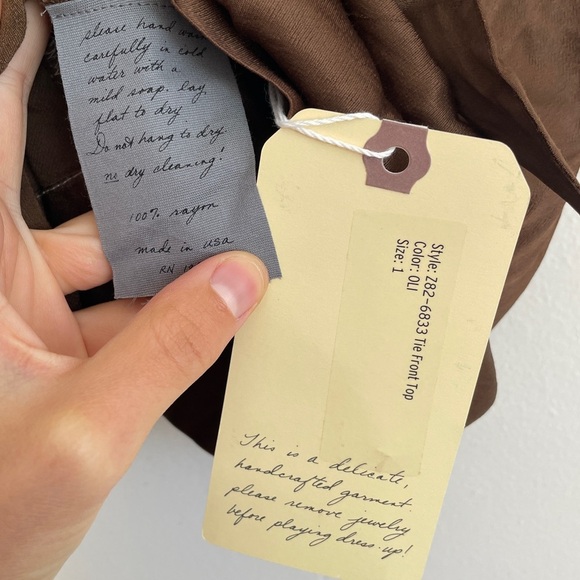 please hand wash
carefully in cold
water with a
mild soap. lay
flat to dry.
Do not hang to dry.
no dry cleaning!
100% rayon
made in USA
RN
Style: Z82-6833 Tie Front Top
Color: OLI
Size: 1
This is a delicate,
handcrafted garment.
please remove jewelry
before playing dress-up!